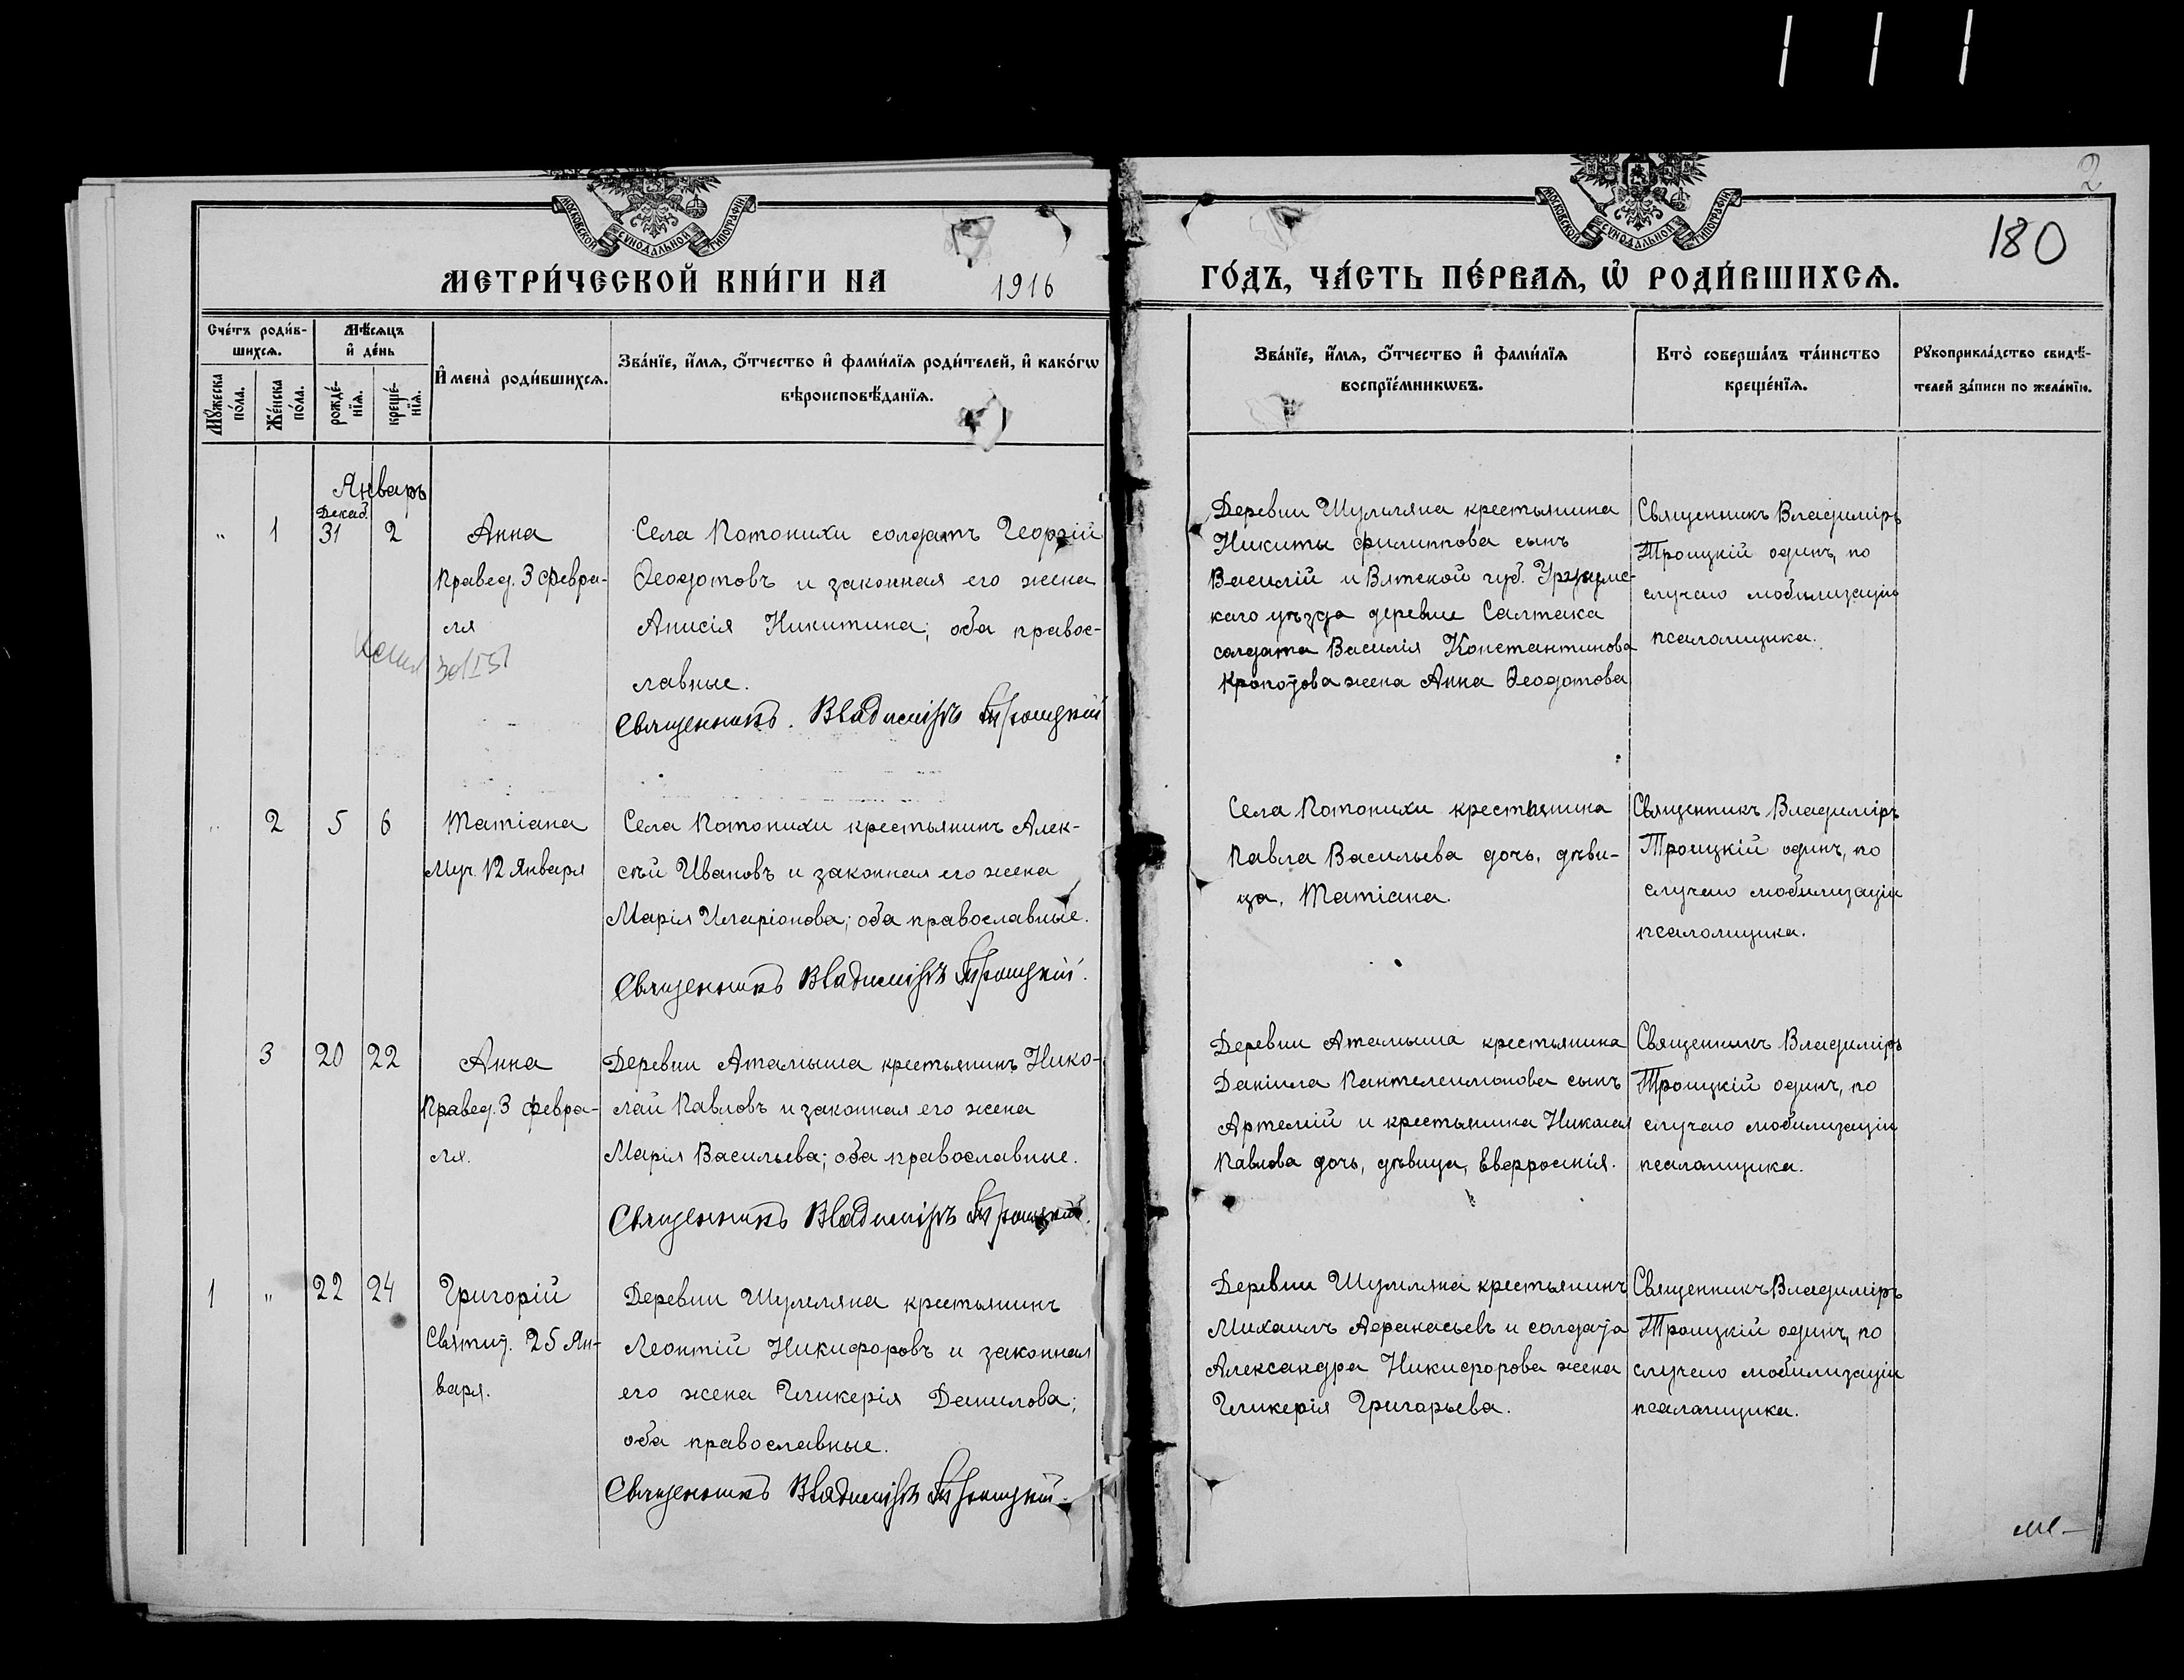 2
180
МОСКОВСКОЙ СУНОДАЛЬНОЙ ТИПОГРАФІИ
МОСКОВСКОЙ СУНОДАЛЬНОЙ ТИПОГРАФІИ
МЕТРИ́ЧЕСКОЙ КНИ́ГИ НА 1916 ГО́ДЪ, ЧА́СТЬ ПЕ́РВАЯ, Ѿ РОДИ́ВШИХСЯ.
Сче́тъ роди́в-
шихся.
Мꙋжеска
по́ла.
Же́нска
по́ла.
Мѣ́сяцъ
и҆ де́нь
рожде́-
нїя.
креще́-
нїя.
И҆мена̀ роди́вшихся.
Зва́нїе, и҆́мя, ѻ҆́тчество и҆ фами́лїя роди́телей, и҆ како́гѡ
вѣроисповѣ́данїя.
Зва́нїе, и҆́мя, ѻ҆́тчество и҆ фами́лїя
воспрїе́мникѡвъ.
Кто̀ соверша́лъ та́инство
креще́нїя.
Рꙋкоприкла́дство свидѣ́-
телей за́писи по жела́нїю.
Январь
Декаб.
" 1 31 2
Анна
Правед. 3 Февра-
ля
Села Потонихи солдатъ Георгій
Ѳеодотовъ и законная его жена
Анисія Никитина; оба правос-
лавные.
Священникъ. Владиміръ Троицкій
Деревни Шумляна крестьянина
Никиты Филиппова сынъ
Василій и Вятской губ. Уржумс-
каго уѣзда деревни Салтака
солдата Василія Константинова
Кропотова жена Анна Ѳеодотова
Священникъ Владиміръ
Троицкій одинъ, по
случаю мобилизаціи
псаломщика.
" 2 5 6
Татіана
Муч. 12 Января
Села Потонихи крестьянинъ Алек-
сѣй Ивановъ и законная его жена
Марія Иларіонова; оба православные.
Священникъ Владиміръ Троицкій.
Села Потонихи крестьянина
Павла Васильева дочь, дѣви-
ца, Татіана.
Священникъ Владиміръ
Троицкій одинъ, по
случаю мобилизаціи
псаломщика.
3 20 22
Анна
Правед. 3 Февра-
ля.
Деревни Аталыша крестьянинъ Нико-
лай Павловъ и законная его жена
Марія Васильева; оба православные.
Священникъ Владиміръ Троицкій.
Деревни Аталыша крестьянина
Даніила Пантелеимонова сынъ
Артемій и крестьянина Николая
Павлова дочь, дѣвица, Евфросинія.
Священникъ Владиміръ
Троицкій одинъ, по
случаю мобилизаціи
псаломщика.
1 " 22 24
Григорій
Святит. 25 Ян-
варя.
Деревни Шумляна крестьянинъ
Леонтій Никифоровъ и законная
его жена Гликерія Данилова;
оба православные.
Священникъ Владиміръ Троицкій.
Деревни Шумляна крестьянинъ
Михаилъ Аѳанасьевъ и солдата
Александра Никифорова жена
Гликерія Григорьева.
Священникъ Владиміръ
Троицкій одинъ, по
случаю мобилизаціи
псаломщика.